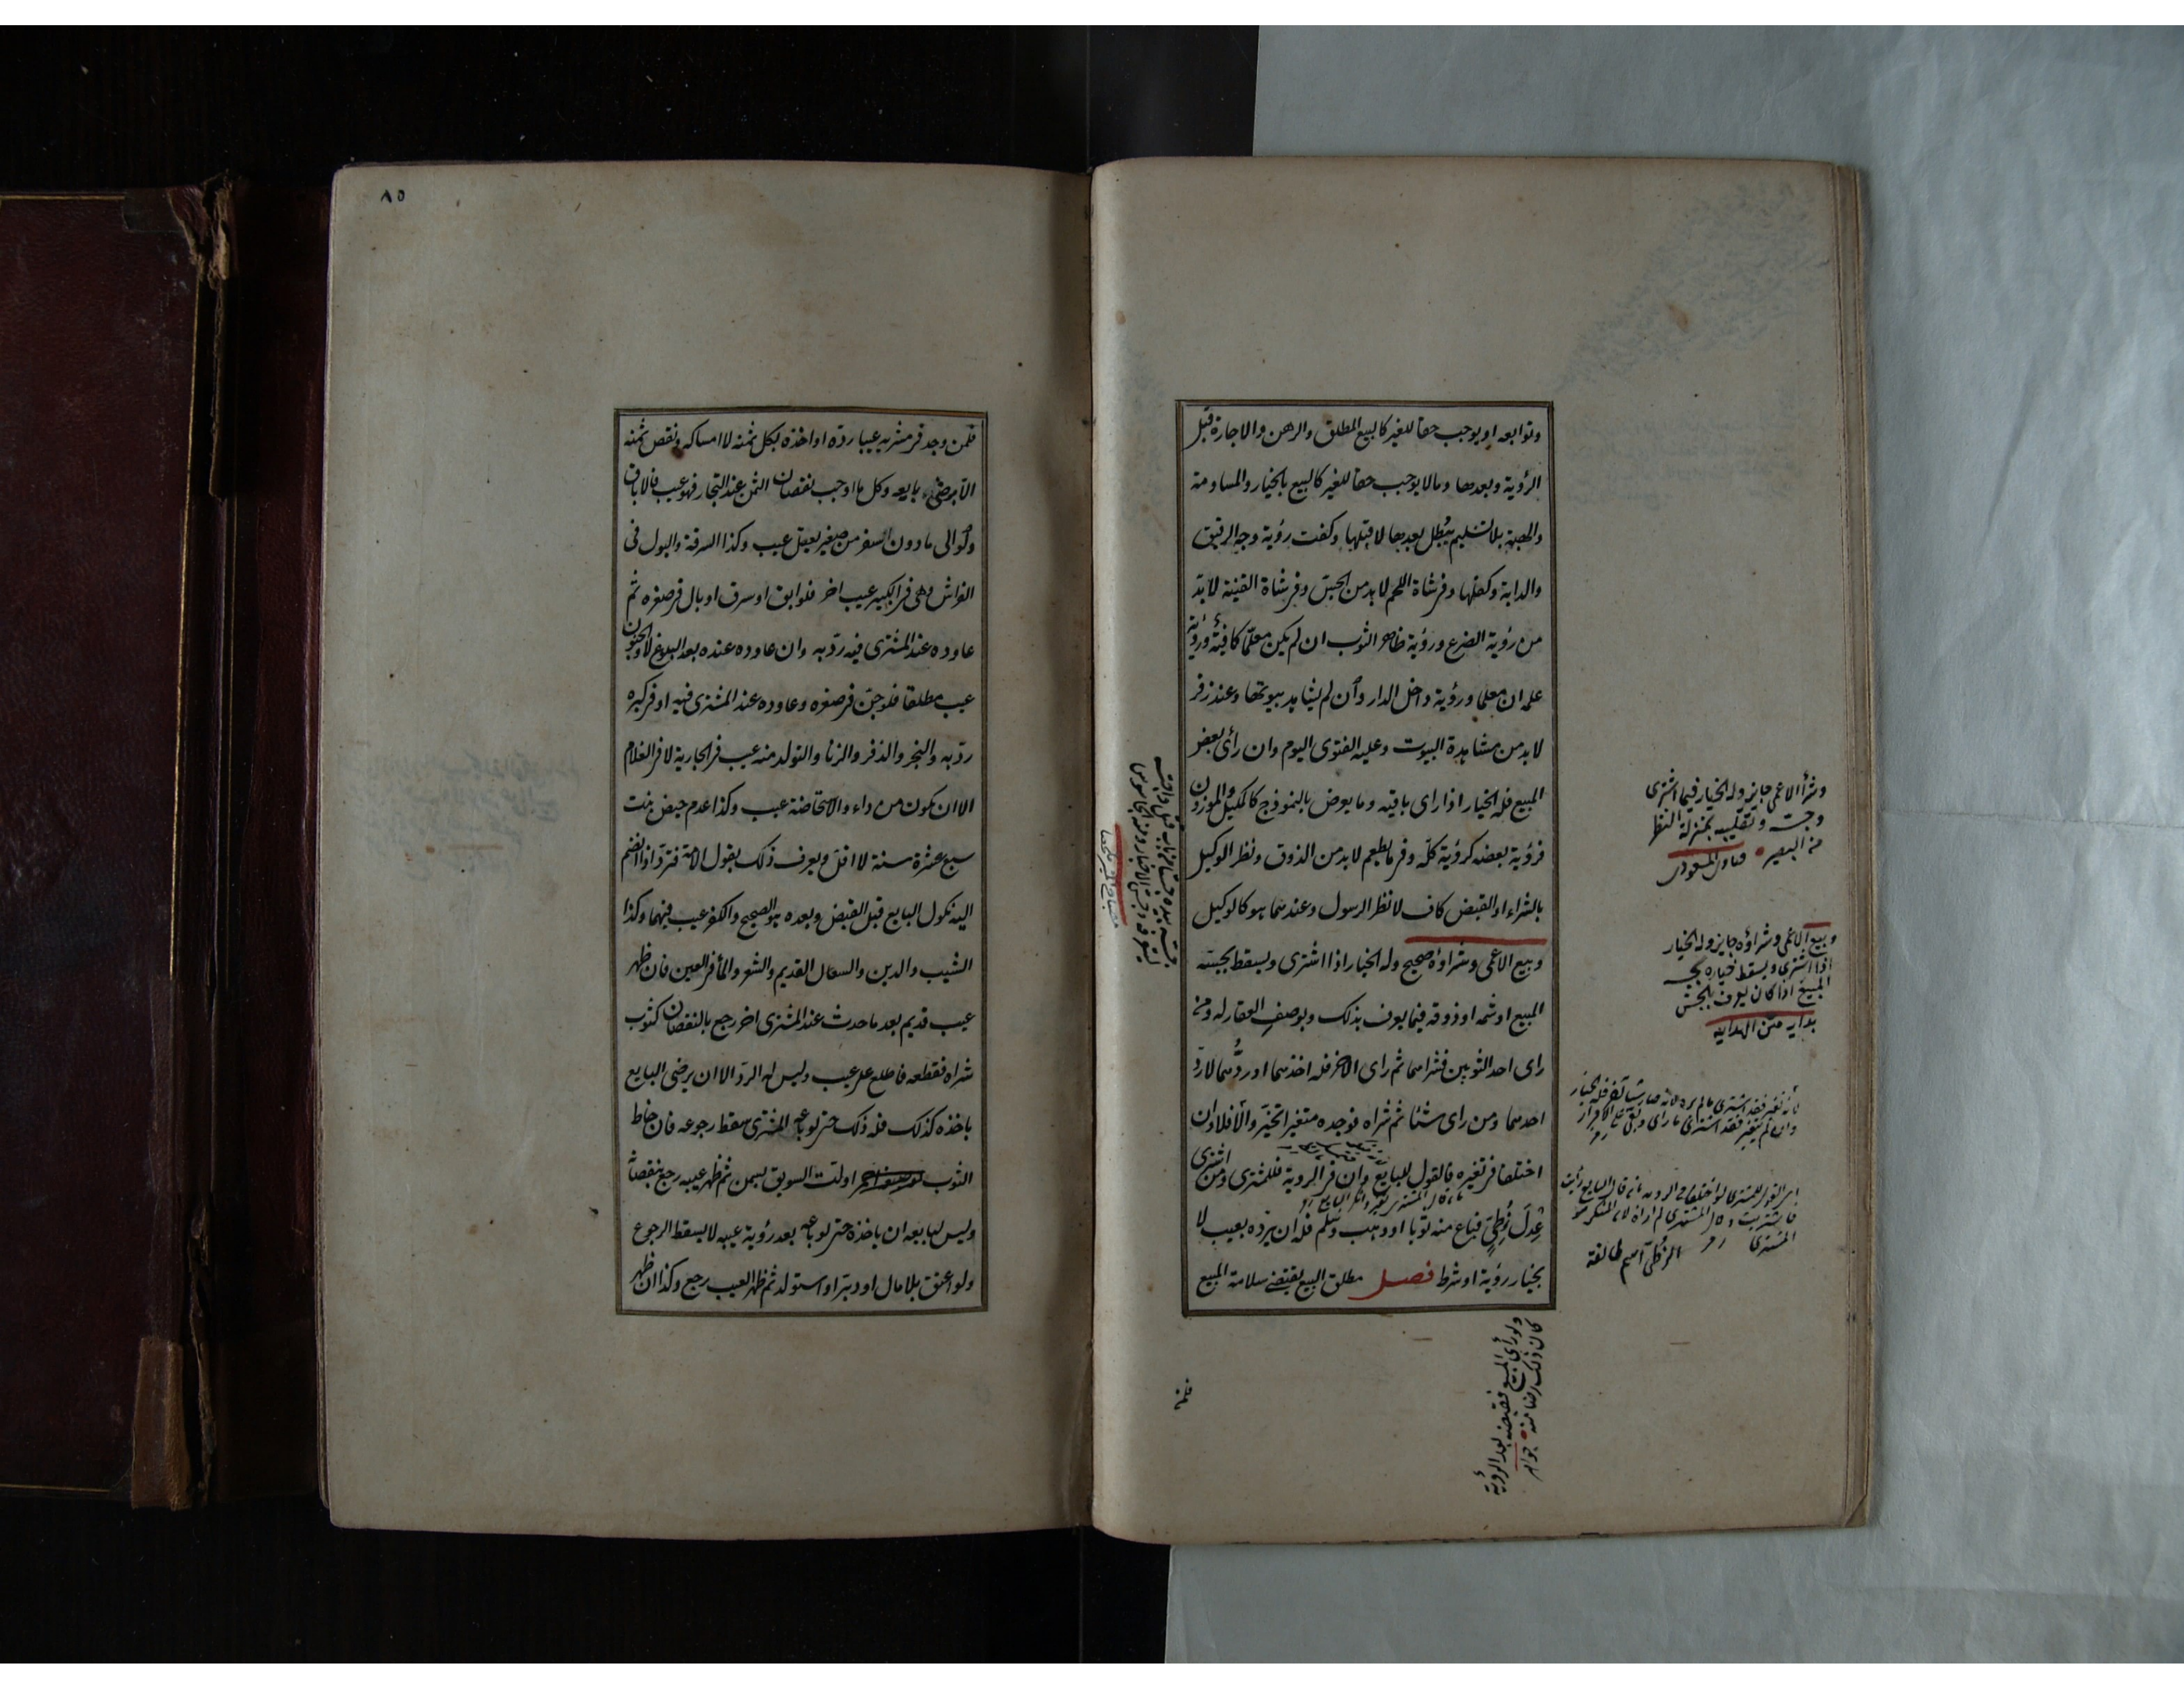 وتوابعه او يوجب حقا للغير كالبيع المطلق والرهن والاجارة قبل
الرؤية وبعدها ومالا يوجب حقا للغير كالبيع بالخيار والمساومة
والهبة بلا تسليم يبطل بعدها لا قبلها وكفت رؤية وجه الرقيق
والدابة وكفلها وفى شاة اللحم لا بد من الجس وفى شاة القنية لا بد
من رؤية الضرع ورؤية ظاهر الثوب ان لم يكن معلما كافية ورؤية
علمه ان معلما ورؤية داخل الدار وان لم يشاهد بيوتها وعند زفر
لا بد من مشاهدة البيوت وعليه الفتوى اليوم وان رأى بعض
المبيع فله الخيار اذا راى باقيه وما يعرض بالنموذج كالمكيل والموزون
فرؤية بعضه كرؤية كله وفى ما يطعم لا بد من الذوق ونظر الوكيل
بالشراء او القبض كاف لا نظر الرسول وعندهما هو كالوكيل
وبيع الاعمى وشراؤه صحيح وله الخيار اذا اشترى ويسقط بجسه
المبيع او شمه او ذوقه فيما يعرف بذلك وبوصف العقار له ومن
راى احد الثوبين فشراهما ثم راى الاخر فله اخذهما او ردهما لا رد
احدهما ومن راى شئا ثم شراه فوجده متغيرا تخير والا فلا وان
اختلفا فى تغيره فالقول للبايع وان فى الروية فللمشترى ومن اشترى
عدل زطى فباع منه ثوبا او وهب وسلم فله ان يرده بعيب لا
بخيار رؤية او شرط فصل مطلق البيع يقتضى سلامة المبيع
وشرأ الاعمى جايز وله الخيار فيما اشترى
وجسه وتقليبه بمنزلة النظر
من البصير
وبيع الاعمى وشراؤه جايز وله الخيار
اذا اشترى ويسقط خياره بجسه
المبيع اذا كان يعرف بالجس
بدايه متن الهدايه
الزطى اسم طائفة
ولو رأى المبيع فقبضه بعد الرؤية
كان ذلك رضا منه
فلمن
٨٥
فلمن وجد فى مشريه عيبا رده او اخذه بكل ثمنه لا امساكه ونقص ثمنه
الا برضى بايعه وكل ما اوجب نقصان الثمن عند التجار فهو عيب فالاباق
ولو الى ما دون السفر من صغير يعقل عيب وكذا السرقة والبول فى
الفراش وهى فى الكبير عيب اخر فلو ابق او سرق او بال فى صغره ثم
عاوده عند المشترى فيه رد به وان عاوده عنده بعد البلوغ لا والجنون
عيب مطلقا فلو جن فى صغره وعاوده عند المشترى فيه او فى كبره
رد به والبخر والذفر والزنا والتولد منه عيب فى الجارية لا فى الغلام
الا ان يكون من داء والاستحاضة عيب وكذا عدم حيض بنت
سبع عشرة سنة لا اقل ويعرف ذلك بقول الامة فترد اذا انضم
اليه نكول البايع قبل القبض وبعده هو الصحيح والكفر عيب فيهما وكذا
الشيب والدين والسعال القديم والشعر والمأ فى العين فان ظهر
عيب قديم بعد ما حدث عند المشترى اخر رجع بالنقصان كثوب
شراه فقطعه فاطلع على عيب وليس له الرد الا ان يرضى البايع
باخذه كذلك فله ذلك حتى لو باعه المشترى سقط رجوعه فان خاط
الثوب او لت السويق بسمن ثم ظهر عيبه رجع بنقصانه
وليس لبايعه ان ياخذه حتى لو باعه بعد رؤية عيبه لا يسقط الرجوع
ولو اعتق بلا مال او دبر او استولد ثم ظهر العيب رجع وكذا ان ظهر